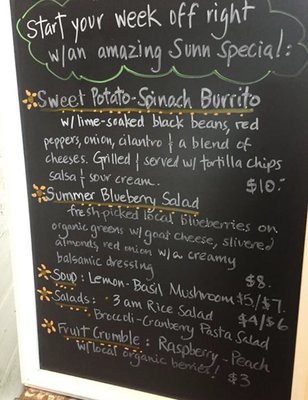 Start your week off right
w/an amazing Sunn Special!:
Sweet Potato-Spinach Burrito
w/lime-soaked black beans, red
peppers, onion, cilantro & a blend of
cheeses. Grilled & served w/ tortilla chips
salsa & sour cream. $10.-
Summer Blueberry Salad
fresh-picked local blueberries on
organic greens w/goat cheese, slivered
almonds, red onion w/a creamy
balsamic dressing $8.
Soup: Lemon-Basil Mushroom $5/$7.
Salads: 3am Rice Salad
Broccoli-Cranberry Pasta Salad $4/$6
Fruit Crumble: Raspberry-Peach
w/local organic berries! $3